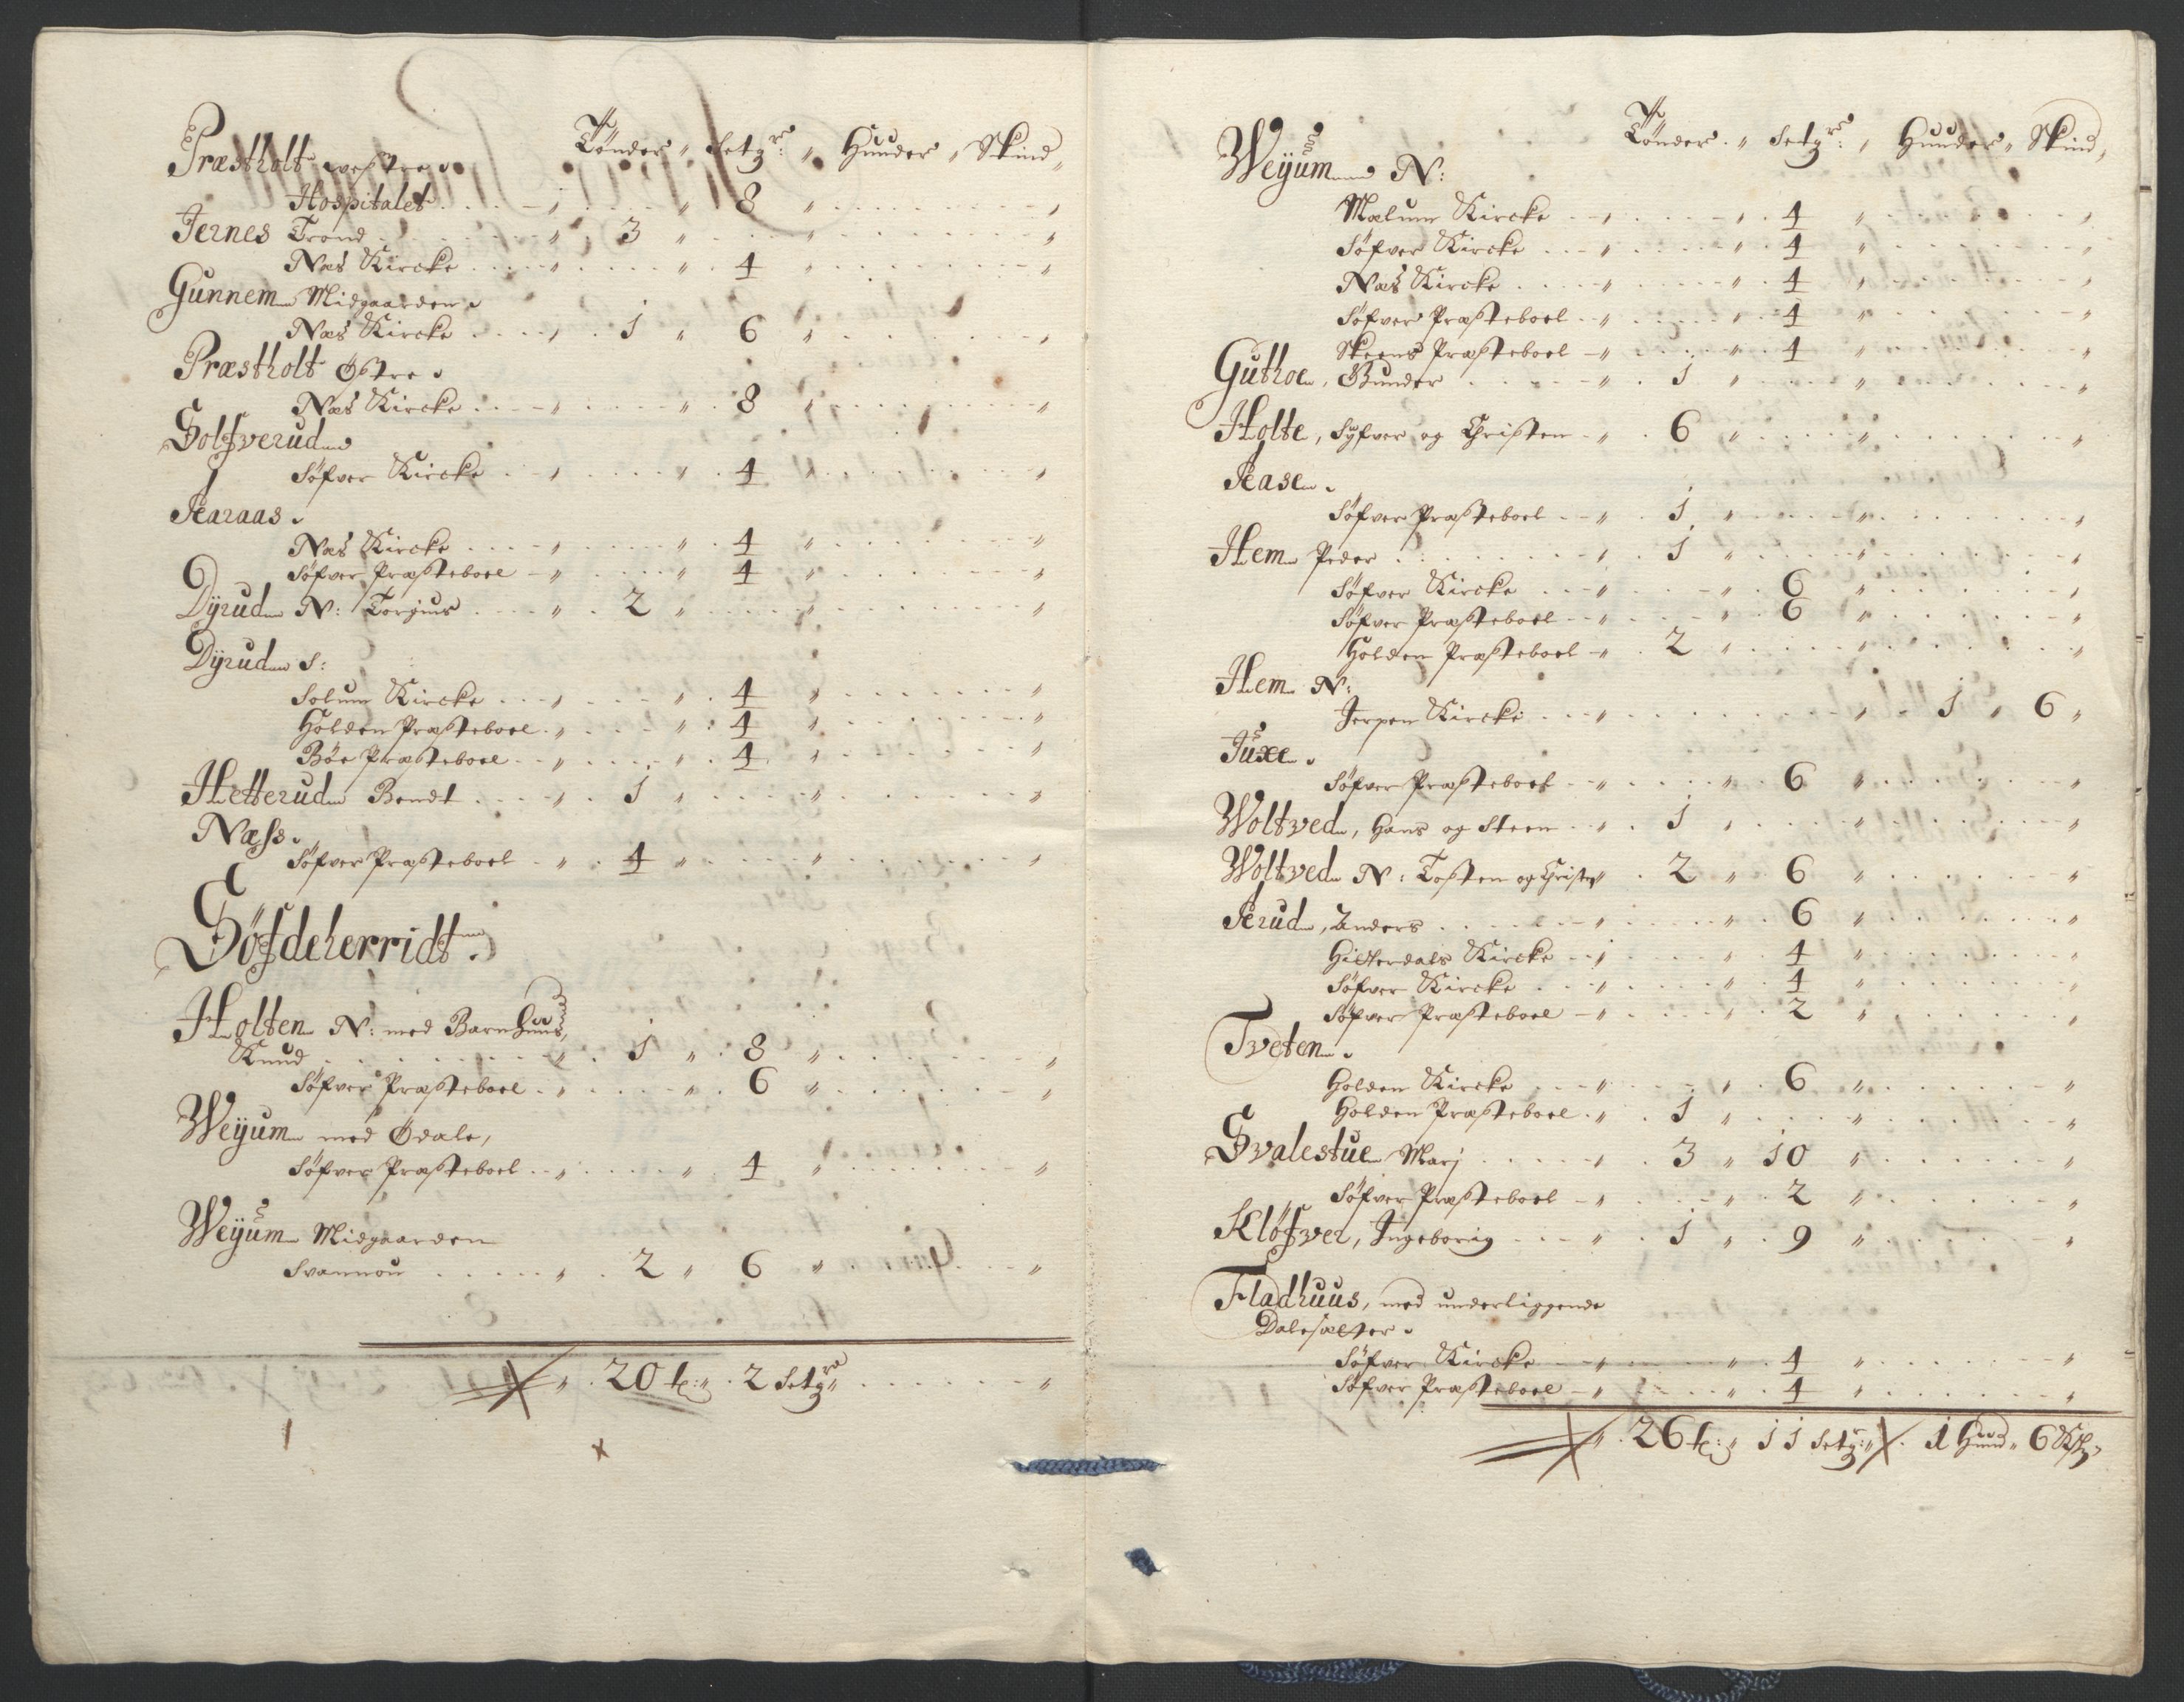 Tønder „ Setgr: „ Huuder „ Skind
Præstholt westre
Hospitalet „ „ 8 „ „
Jernes Trond „ 3 „ „ „
Næs Kircke „ „ 4 „ „
Gunnem Midgaarden
Næs Kircke „ 1 „ 6 „ „
Præstholt Østre
Næs Kircke „ „ 8 „ „
Solfverud
Søfver Kircke „ „ 4 „ „
Aaraas
Næs Kircke „ „ 4 „ „
Søfver Præsteboel „ „ 4 „ „
Dÿrud N: Torgius „ 2 „ „ „
Dÿrud S:
Solum Kircke „ „ 4 „ „
Holden Præsteboel „ „ 4 „ „
Bøe Præsteboel „ „ 4 „ „
Hetterud Bendt „ 1 „ „ „
Næss
Søfver Præsteboel „ 4 „ „ „
Søfdeherridt
Holten N: med Barnhuus,
Knud „ 1 „ 8 „ „
Søfver Præsteboel „ „ 6 „ „
Weÿum med Ødale,
Søfver Præsteboel „ „ 4 „ „
Weÿum Midgaarden
Svannou „ 2 „ 6 „ „
„ 20 t: „ 2 Setgr „ „
Tønder „ Setgr: „ Huuder „ Skind
Weÿum N:
Mælum Kircke „ „ 4 „ „
Søfver Kircke „ „ 4 „ „
Næs Kircke „ „ 4 „ „
Søfver Præsteboel „ „ 4 „ „
Skeens Præsteboel „ „ 4 „ „
Guthoe, Gunder „ 1 „ „ „
Holte, Syfver og Christen „ 6 „ „ „
Aase
Søfver Præsteboel „ 1 „ „ „
Hem Peder „ 1 „ „ „
Søfver Kircke „ „ 6 „ „
Søfver Præsteboel „ „ 6 „ „
Holden Præsteboel „ 2 „ „ „
Hem N:
Jerpen Kircke „ „ 1 „ 6 „
Juxe
Søfver Præsteboel „ „ 6 „ „
Woltved, Hans og Steen „ 1 „ „ „
Woltved N: Tosten og Christen „ 2 „ 6 „ „
Aerud, Anders „ „ 6 „ „
Hitterdals Kircke „ „ 4 „ „
Søfver Kircke „ „ 4 „ „
Søfver Præsteboel „ „ 2 „ „
Tveten
Holden Kircke „ „ 6 „ „
Holden Præsteboel „ 1 „ „ „
Svalestue Marj „ 3 „ 10 „ „
Søfver Præsteboel „ „ 2 „ „
Kløfver, Ingeborig „ 1 „ 9 „ „
Fladhuus, med underliggende
Dalesætter
Søfver Kircke „ „ 4 „ „
Søfver Præsteboel „ „ 4 „ „
„ 26 t: „ 11 Setgr: „ 1 Huud „ 6 Sk: